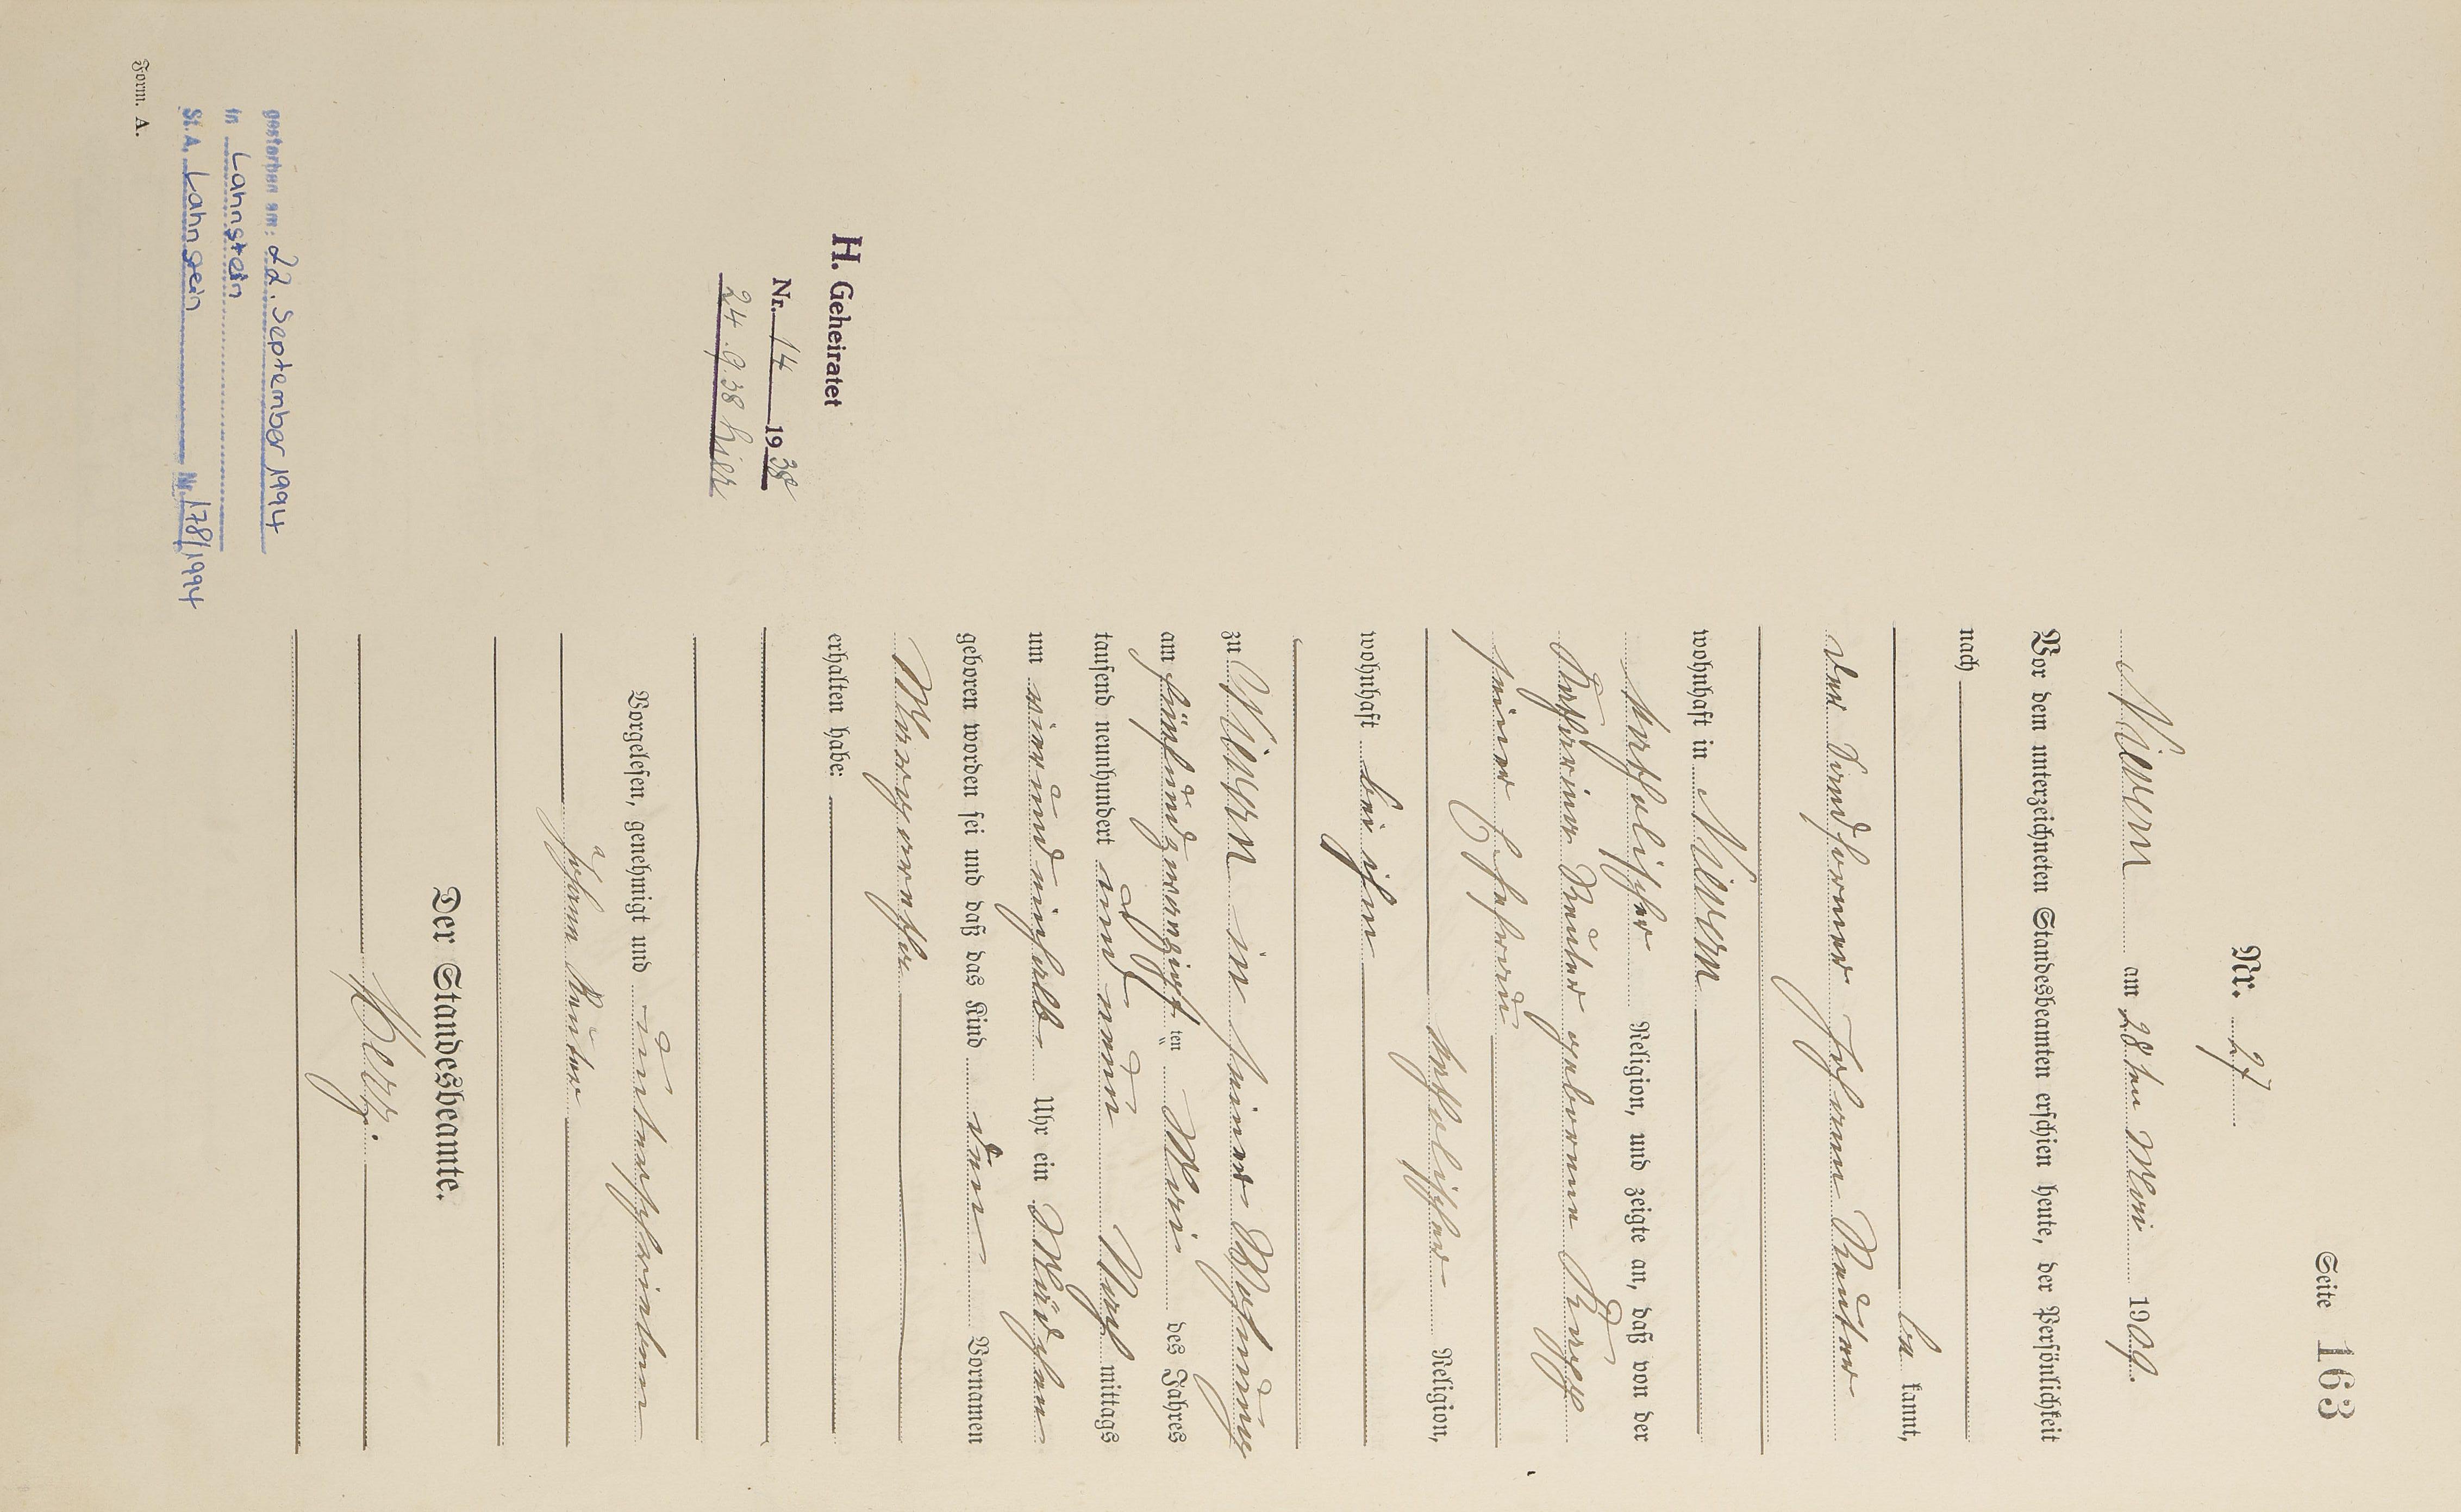 Seite 163
Nr. 27
Nievern am 28ten Mai 1909.
Vor dem unterzeichneten Standesbeamten erschien heute, der Persönlichkeit
nach
be kannt,
der Landformer Johann Reuter
wohnhaft in Nievern
katholischer Religion, und zeigte an, daß von der
Katharina Reuter geborene
seiner Ehefrau
katholischer Religion,
wohnhaft bei ihm
zu Nievern in seiner Wohnung
am fünfundzwanzigsten Mai des Jahres
tausend neunhundert und neun Nach mittags
um vierundeinhalb Uhr ein Mädchen
geboren worden sei und daß das Kind den Vornamen
Margaretha
erhalten habe:
Vorgelesen, genehmigt und unterschrieben
Johann Reuter
Der Standesbeamte.
H. Geheiratet
Nr. 14 1938
24.9.38 hier
gestorben am: 22. September 1994
in Lahnstein
St. A. Lahnstein Nr. 178/1994
Form. A.